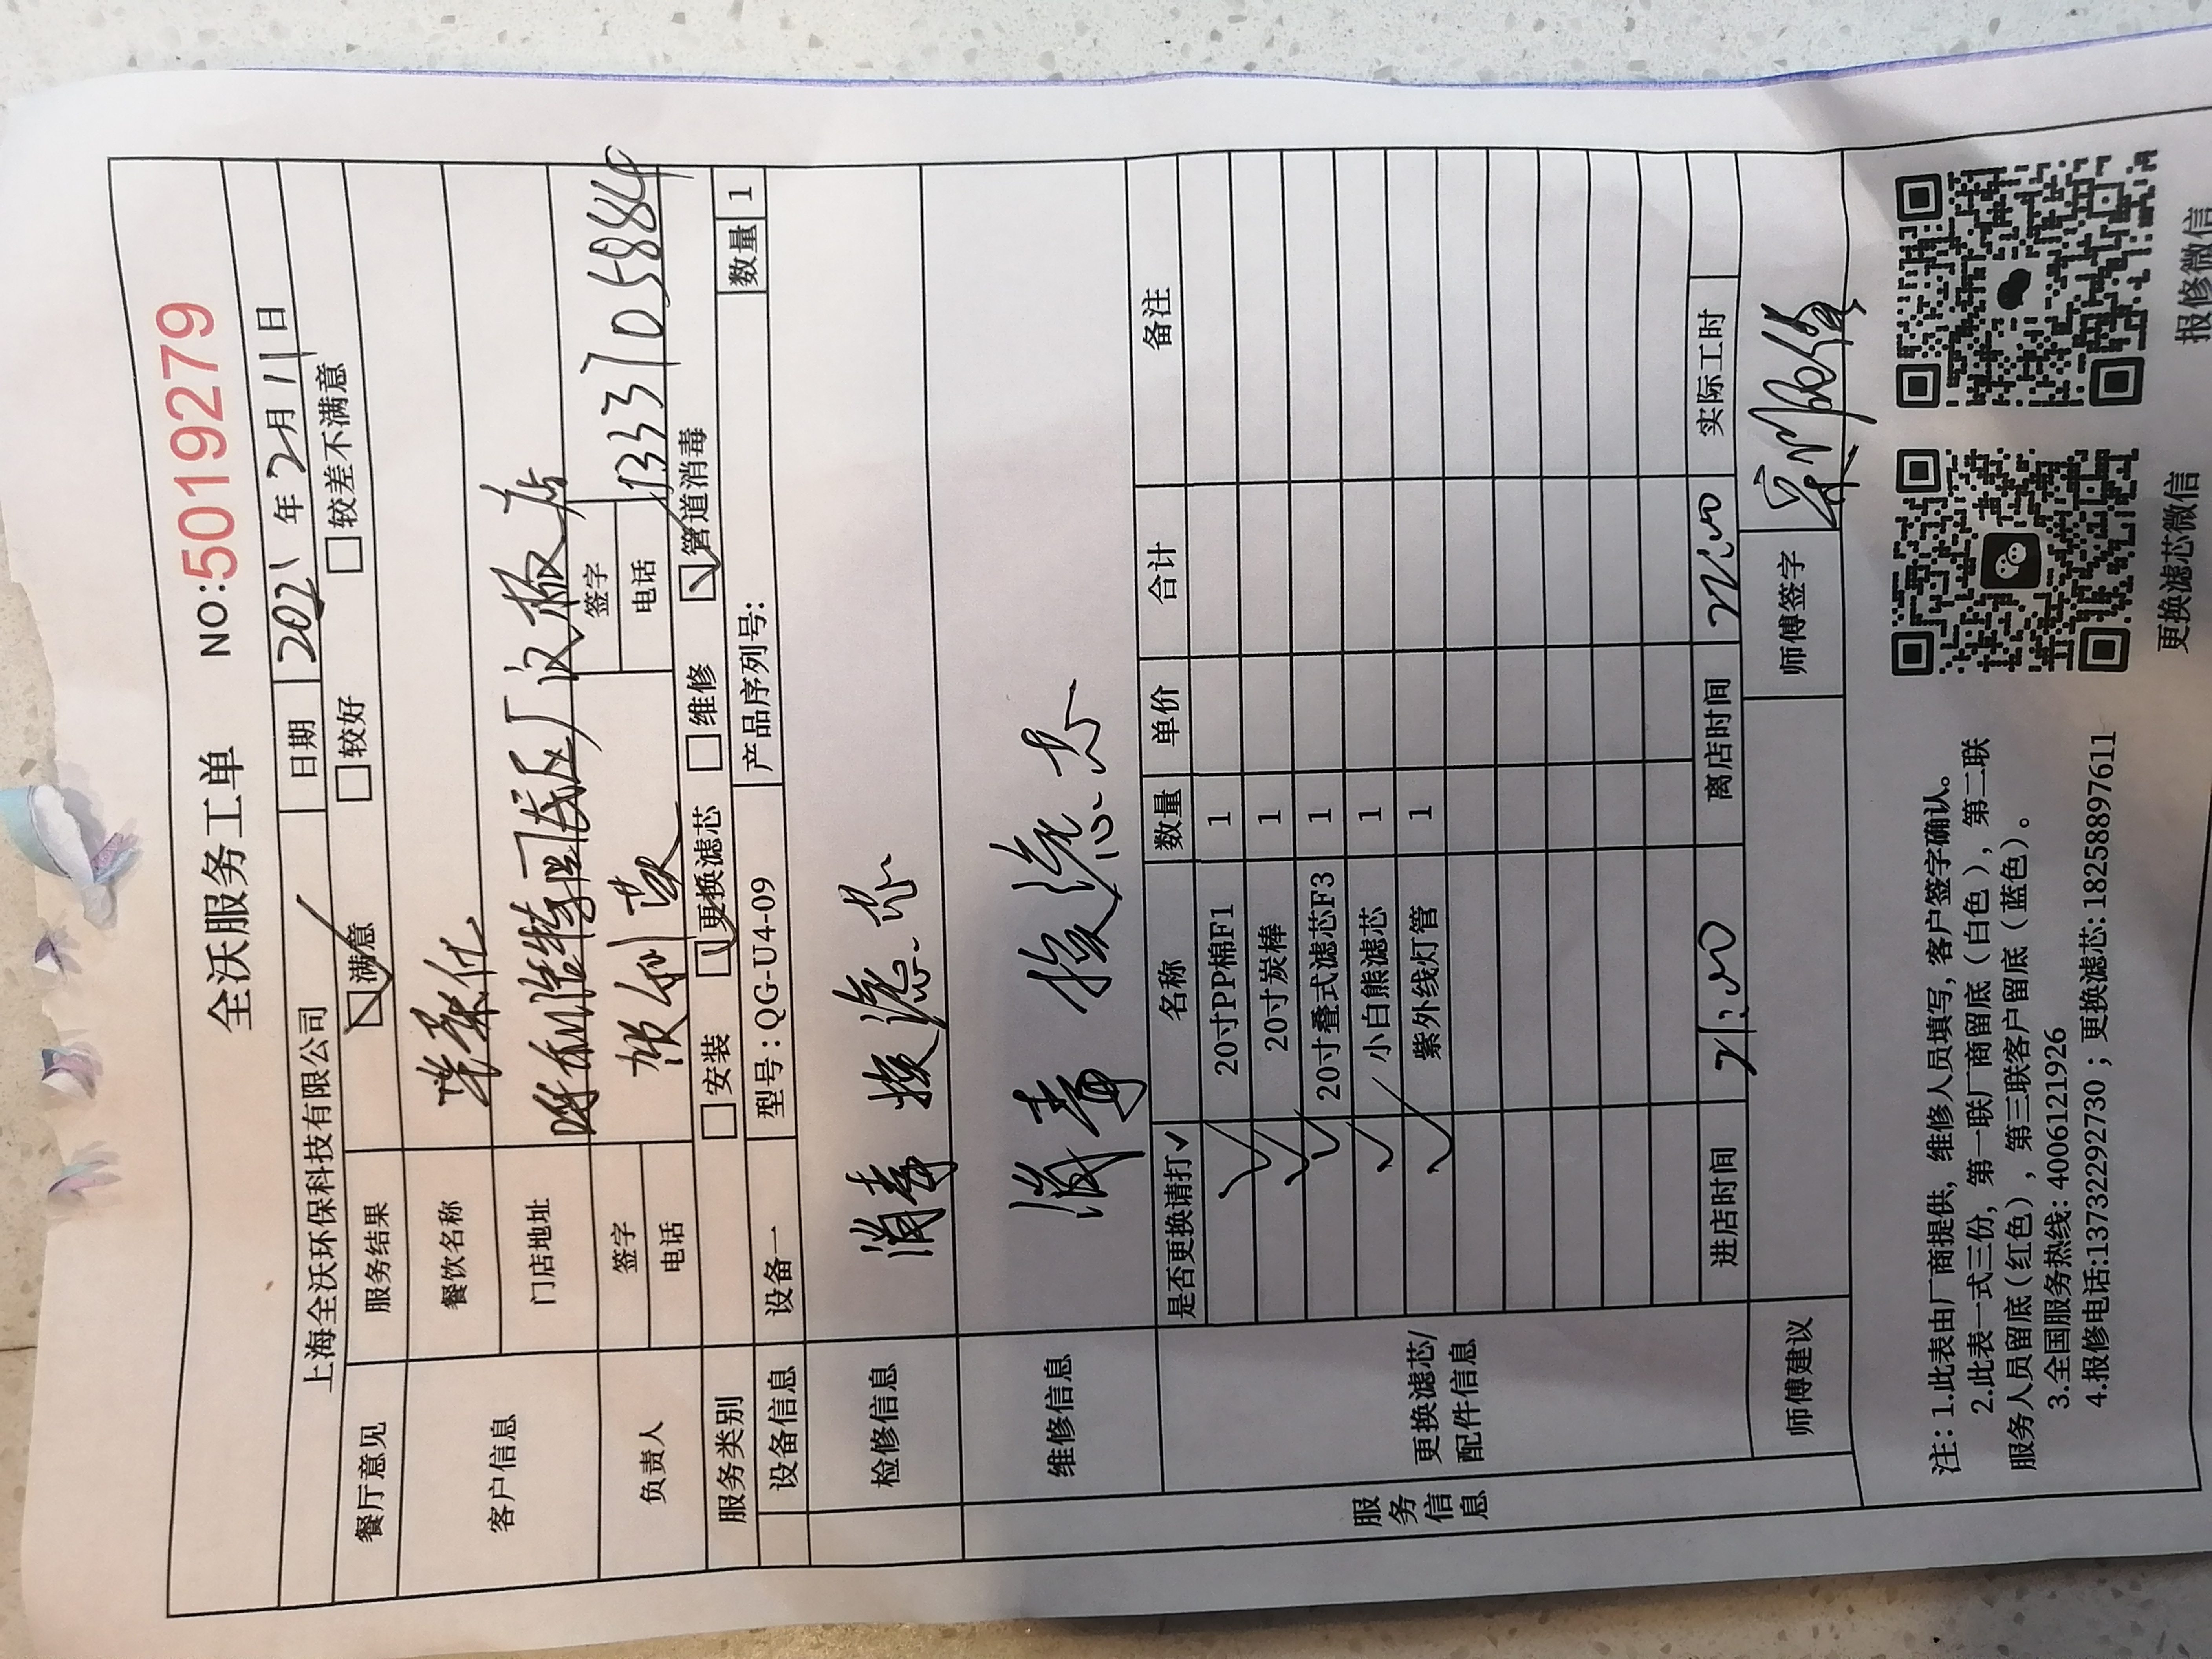 全沃服务工单 NO:5019279
上海全沃环保科技有限公司 日期 2021年2月11日
餐厅意见 服务结果 ☑满意 □较好 □较差不满意
客户信息 餐饮名称
门店地址
负责人 签字 签字
电话 电话 13331058844
服务类别 □安装 ☑更换滤芯 □维修 ☑管道消毒
设备信息 设备一 型号:QG-U4-09 产品序列号: 数量 1
检修信息 消毒 换滤芯
维修信息 消毒 换滤芯
服务信息
更换滤芯/
配件信息
是否更换请打✓ 名称 数量 单价 合计 备注
✓ 20寸PP棉F1 1
✓ 20寸炭棒 1
✓ 20寸叠式滤芯F3 1
✓ 小白熊滤芯 1
✓ 紫外线灯管 1
进店时间 21:00 离店时间 22:00 实际工时
师傅建议 师傅签字
注: 1.此表由厂商提供, 维修人员填写, 客户签字确认。
2.此表一式三份, 第一联厂商留底(白色), 第二联
服务人员留底(红色), 第三联客户留底(蓝色)。
3.全国服务热线: 4006121926
4.报修电话:13732292730; 更换滤芯: 18258897611
更换滤芯微信 报修微信